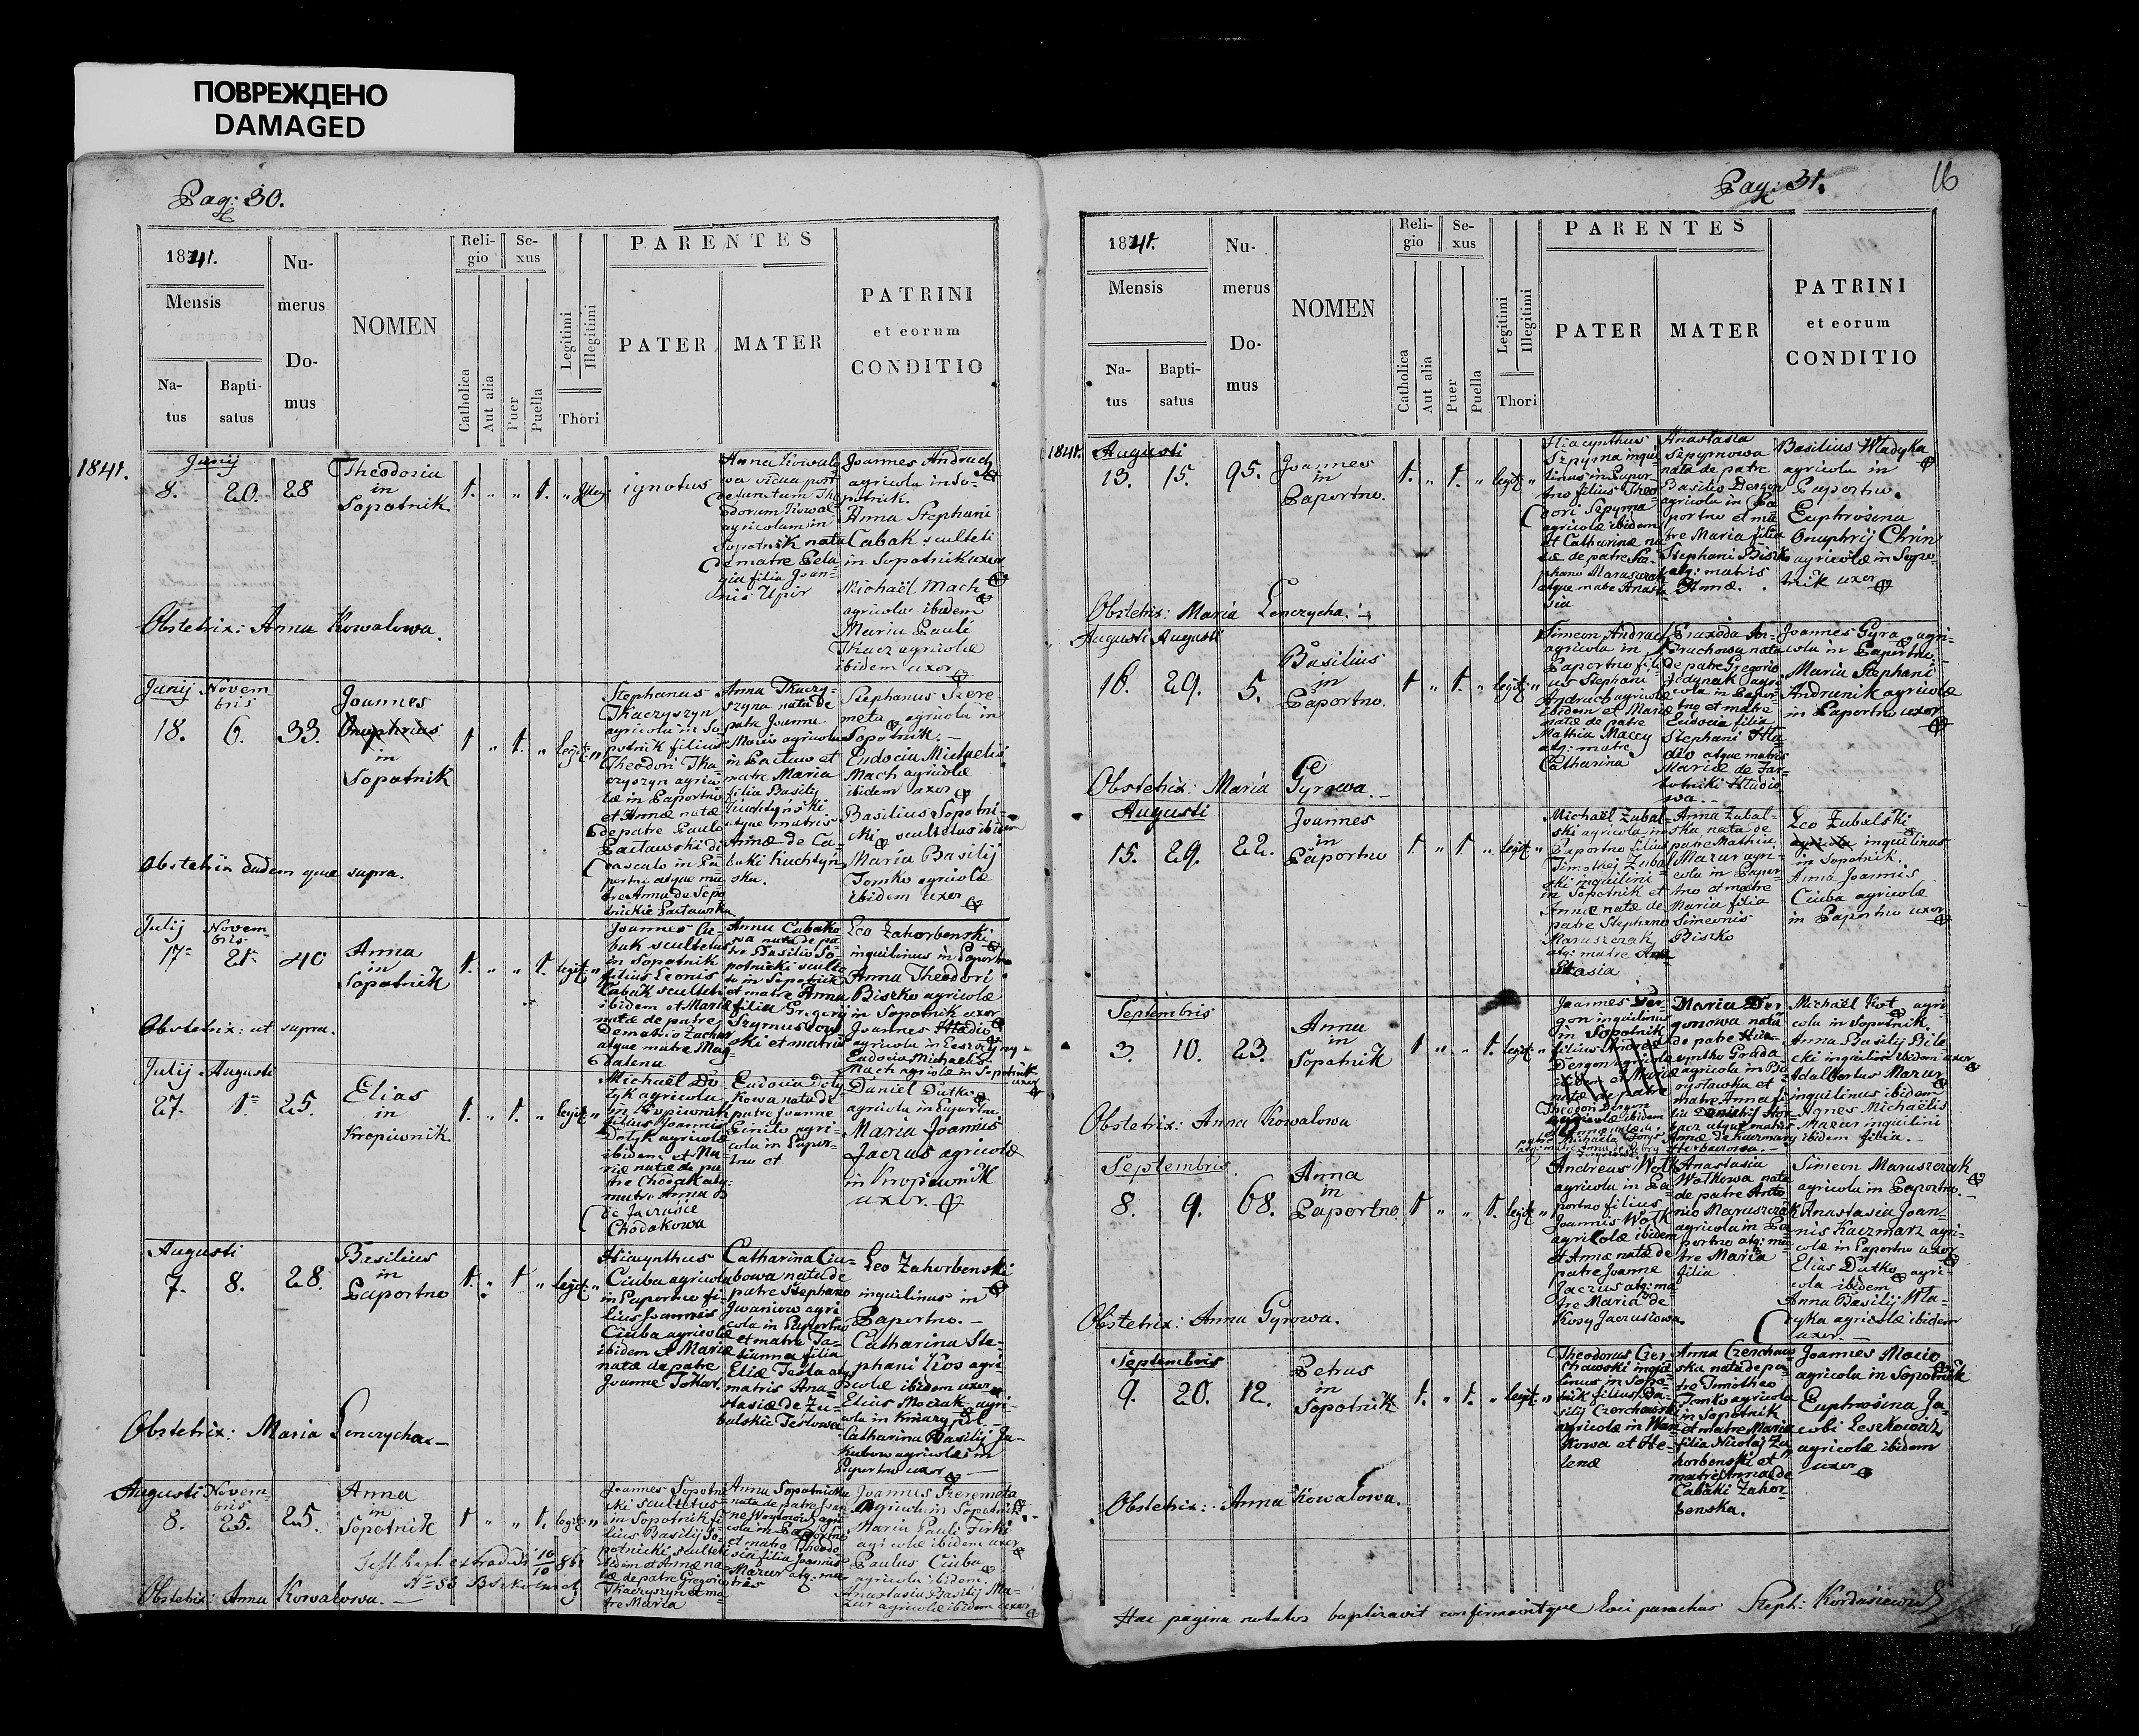 ПОВРЕЖДЕНО
DAMAGED
Pag: 30.
1841.
Mensis
Na-
tus
Bapti-
satus
Nu-
merus
Do-
mus
NOMEN
Reli-
gio
Catholica
Aut alia
Se-
xus
Puer
Puella
Legitimi
Illegitimi
Thori
PARENTES
PATER
MATER
PATRINI
et eorum
CONDITIO
1841.
Junij
8. 20. 28
Theodosia
in
Sopotnik
1. " " 1. "
ignotus
Anna Kowalo
wa vidua post
defunctum The
odorum Kowal
agricolam in
Sopotnik nata
de matre Pela
gia filia Joan-
nis Upir
Joannes Andruch
agricola in So-
potnik.
Anna Stephani
Cabak sculteti
in Sopotnik uxor
Michaël Mach
agricola ibidem
Maria Pauli
Tkacz agricolæ
ibidem uxor
Obstetrix: Anna Kowalowa.
Junij Novem
bris
18. 6. 33.
Joannes
Onuphrius
in
Sopotnik
1 " 1. " legit "
Stephanus
Tkaczyszyn
agricola in So
potnik filius
Theodori Tka
czyszyn agrico
læ in Paportno
et Annæ natæ
de patre Paulo
Anna Tkaczy-
szyna nata de
patre Joanne
agricola
et
matre Maria
filia Basilij
atque matris
Annæ de Ca-
baki
Stephanus Szere
meta agricola in
Sopotnik. -
Eudocia Michaelis
Mach agricolæ
ibidem uxor
Basilius Sopotni-
cki scultetus ibidem
Maria Basilij
Tomko agricolæ
ibidem uxor
Obstetrix eadem quæ supra.
Julij Novem
bris
17. 21. 40
Anna
in
Sopotnik
1. " " 1. legit "
Joannes Ca-
bak scultetus
in Sopotnik
filius Leonis
Cabak sculteti
ibidem et Mariæ
natæ de patre
Demetrio Zachar
atque matre Mag-
dalena
Anna Cabako
wa nata de pa-
tre Basilio So-
potnicki sculte
to in Sopotnik
et matre Anna
filia Gregorij
Szymusiow
ski et matris
Leo Zahorbenski
inquilinus in Paportno
Anna Theodori
Biszko agricolæ
in Sopotnik uxor
Joannes Hladio
agricola in
Eudocia Michaelis
Mach agricolæ in Sopotnik
uxor
Obstetrix: ut supra.
Julij Augusti
27. 1. 25.
Elias
in
Kropiwnik
1. " 1. " legit "
Michaël Do
lyk agricola
in Kropiwnik
filius Joannis
Dolyk agricolæ
ibidem et Ma
riæ natæ de pa
tre Chodak atq:
matre Anna
Chodakowa
Eudocia Doly
kowa nata de
patre Joanne
agri-
cola in Papor-
tno et
Daniel Dutko
agricola in Paportno
Maria Joannis
Jaczus agricolæ
in Kropiwnik
uxor.
Augusti
7. 8. 28.
Basilius
in
Paportno
1. " 1 " legit "
Hiacynthus
Ciuba agricola
in Paportno fi-
lius Joannis
Ciuba agricolæ
ibidem et Mariæ
natæ de patre
Joanne Tokar.
Catharina Ciu-
bowa nata de
patre Stephano
Iwaniow agri
cola in Paportno
et matre Ta-
tianna filia
Eliæ Tesla atq
matris Ana-
stasiæ de Zu-
balskie Teslowa
Leo Zahorbenski
inquilinus in
Paportno. -
Catharina Ste-
phani Kos agri
colæ ibidem uxor
Elias Mociak agri-
cola in
Catharina Basilij Ja-
kubow agricolæ in
Paportno uxor
Obstetrix: Maria Lenczycha -
Augusti Novem
bris
8. 25. 25.
Anna
in
Sopotnik
1 " " 1. legit "
Joannes Sopotni
cki scultetus
in Sopotnik fi
lius Basilij So-
potnicki sculteti
ibidem et Annæ na
tæ de patre Gregorio
Tkaczyszyn et ma
tre Maria
Anna Sopotnicka
nata de patre Joan
ne agri
cola in Paportno
et matre Theodo
sia filia Joannis
Mazur atq: ma
tris
Joannes Szeremeta
agricola in Sopotnik
Maria Pauli
agricolæ ibidem uxor
Paulus Ciuba
agricola ibidem.
Anastasia Basilij Ma-
zur agricolæ ibidem uxor
Obstetrix: Anna Kowalowa. -
Pag: 31.
16
1841.
Mensis
Na-
tus
Bapti-
satus
Nu-
merus
Do-
mus
NOMEN
Reli-
gio
Catholica
Aut alia
Se-
xus
Puer
Puella
Legitimi
Illegitimi
Thori
PARENTES
PATER
MATER
PATRINI
et eorum
CONDITIO
1841.
Augusti
13. 15. 95.
Joannes
in
Paportno.
1. " 1. " legit "
Hiacynthus
Szpyrna inqui
linus in Papor
tno filius Theo
dori Szpyrna
agricolæ ibidem
et Catharinæ na
tæ de patre Ste
phano Maruszczak
atque matre Anasta
sia
Anastasia
Szpyrnowa
nata de patre
Basilio Dergon
agricola in Pa
portno et ma
tre Maria filia
Stephani Biszko
atq: matris
Annæ.
Basilius Wladyka
agricola in
Paportno.
Euphrosina
Onuphrij Chrin
agricolæ in Sopo-
tnik uxor
Obstetrix: Maria Lenczycha. -
Augusti Augusti
16. 29. 5.
Basilius
in
Paportno.
1 " 1. " legit "
Simeon Andruch
agricola in
Paportno fili
us Stephani
Andruch agricolæ
ibidem et Mariæ
natæ de patre
Mathia Maccy
atq: matre
Catharina
Praxeda An-
druchowa nata
de patre Gregorio
Jedynak agri
cola in Papor-
tno et matre
Eudocia filia
Stephani Hla
dio atque matris
Mariæ de Jar-
botniki Hladio
wa. -
Joannes Gyra agri-
cola in Paportno.
Maria Stephani
Andrunik agricolæ
in Paportno uxor
Obstetrix: Maria Gyrowa. -
Augusti
15. 29. 22.
Joannes
in
Paportno
1. " 1. " legit "
Michaël Zubal-
ski agricola in
Paportno filius
Timothej Zubal
ski inquilini
in Sopotnik et
Annæ natæ de
patre Stephano
Maruszczak
atq: matre Ana
stasia
Anna Zubal-
ska nata de
patre Mathia
Mazur agri-
cola in Papor-
tno et matre
Maria filia
Simeonis
Biszko
Leo Zubalski
agricola inquilinus
in Sopotnik.
Anna Joannis
Ciuba agricolæ
in Paportno uxor
Septembris
3. 10. 23.
Anna
in
Sopotnik
1 " " 1. legit "
Joannes Der-
gon inquilinus
in Sopotnik
filius Andreæ
Dergon agricolæ
ibidem et Mariæ
natæ de patre
Theodori Dergon
agricolæ ibidem
Maria Der-
gonowa nata
de patre Hia-
cyntho Grada
agricola in Bo
rysławka et
matre Anna fi
lia Demetrij Hor
bacz atque matris
Annæ de Kaczmary
Horbaczowa. -
Michaël Kot agri
cola in Sopotnik.
Anna Basilij Bile
cki inquilini ibidem uxor
Adalbertus Mazur
inquilinus ibidem
Agnes Michaëlis
Mazur inquilini
ibidem filia. -
Obstetrix: Anna Kowalowa
Septembris.
8. 9. 68.
Anna
in
Paportno.
1 " " 1. legit "
Andreas Wolk
agricola in Pa
portno filius
Joannis Wolk
agricolæ ibidem
et Annæ natæ de
patre Joanne
Jaczus atq: ma
tre Maria de
Kosy Jaczusiowa.
Anastasia
Wolkowa nata
de patre Anto
nio Maruszczak
agricola in Pa
portno atq: ma
tre Maria
filia
Simeon Maruszczak
agricola in Paportno. -
Anastasia Joan-
nis Kaczmarz agri-
colæ in Paportno uxor
Elias Dutko agri
cola ibidem
Anna Basilij Wla-
dyka agricolæ ibidem
uxor. -
Obstetrix: Anna Gyrowa.
Septembris
9. 20. 12.
Petrus
in
Sopotnik
1. " 1. " legit "
Theodorus Czer
chawski inqui
linus in Sopo-
tnik filius Ba-
silij Czerchawski
agricolæ in Wan
kowa et He-
lenæ
Anna Czerchaw
ska nata de pa-
tre Timotheo
Tomko agricola
in Sopotnik
et matre Maria
filia Nicolaj Za
horbenski et
matris Annæ de
Cabaki Zahor-
benska.
Joannes Mocio
agricola in Sopotnik
Euphrosina Ja-
cobi Leszkowicz
agricolæ ibidem
uxor
Obstetrix: Anna Kowalowa.
Hac pagina notatos baptizavit confirmavitque Loci parochus Steph: Kordasiewicz